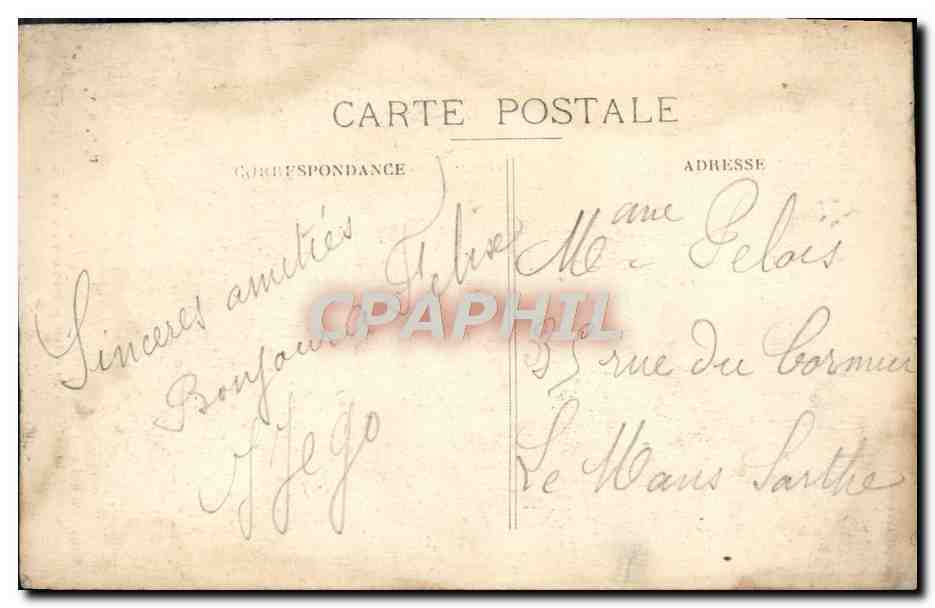 CARTE POSTALE
CORRESPONDANCE
ADRESSE
Sinceres amitiés
Bonjour a Felix
Jego
Mme Pelois
35 rue du Cormier
Le Mans Sarthe
CPAPHIL